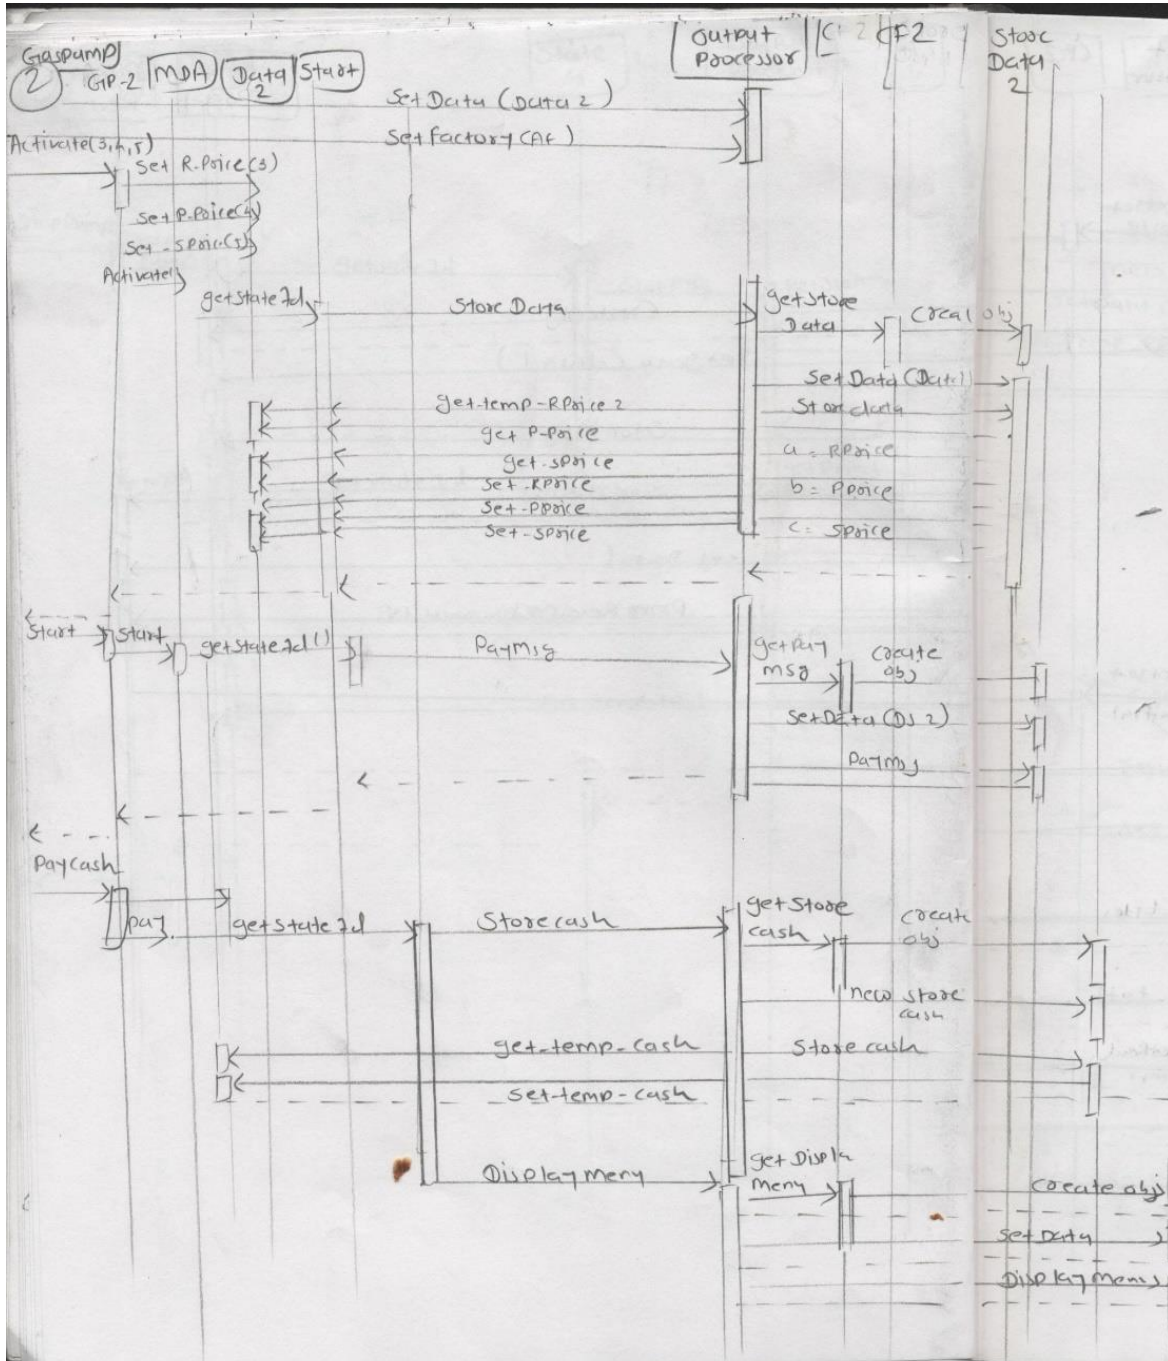 Gaspump
2
GP-2
MDA
Data
2
Start
Output
Processor
CF2
Store
Data
2
Set Data (Data 2)
Set factory (AF)
Activate(3,4,5)
Set R.Price(3)
Set P.Price(4)
Set -SPrice(5)
Activate()
getstateId
Store Data
getstore
Data
Creat obj
Set Data (Data)
get-temp-RPrice 2
Stor data
get P-Price
a = RPrice
get-sprice
set-RPrice
b = PPrice
Set-PPrice
Set-SPrice
c = SPrice
Start
Start
getstateId()
PayMsg
getpay
msg
create
obj
SetData (DS 2)
Paymsg
Paycash
pay
getstateId
Storecash
getstore
cash
create
obj
new store
cash
get-temp-cash
Store cash
Set-temp-cash
Display meny
get Displa
meny
create obj
Set Data
Display menu